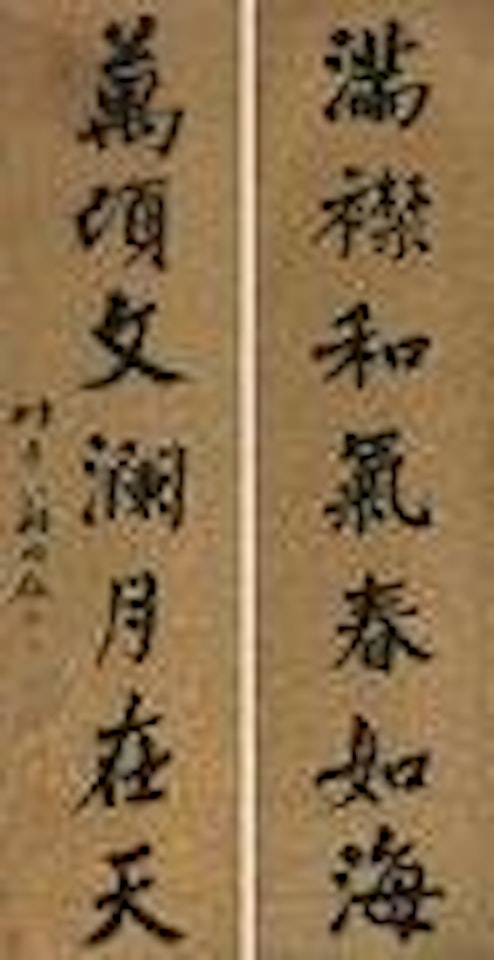 滿襟和氣春如海
萬頃文瀾月在天